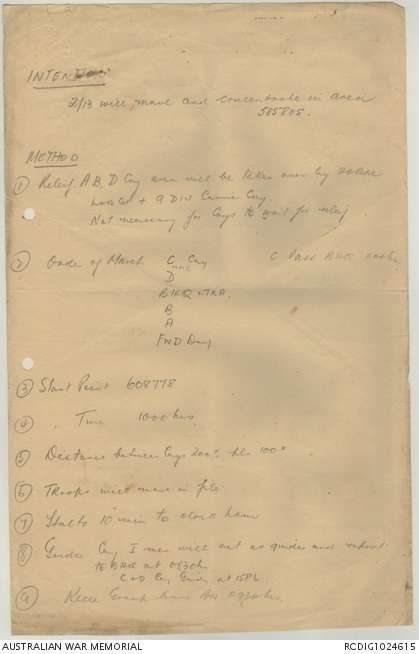 INTENTION
2/13 will move and concentrate in area
585805.
METHOD
① Relief A, B, D Coy area will be taken over by
+ 9 Div Cav Coy.
Not necessary for Coys to wait for relief
② Order of March C Coy C Pass BHQ
D
BHQ
B
A
FWD Coy
③ Start Point 608778
④ Time 1000 hrs
⑤ Distance between Coys 200x pls 100x
⑥ Troops will move in file
⑦ Halts 10 min to clock hour
⑧ Guides Coy I men will act as guide and report
to BHQ at 0830 hr
C & D Coy Guides at
⑨ Recce Group leave
AUSTRALIAN WAR MEMORIAL
RCDIG1024615